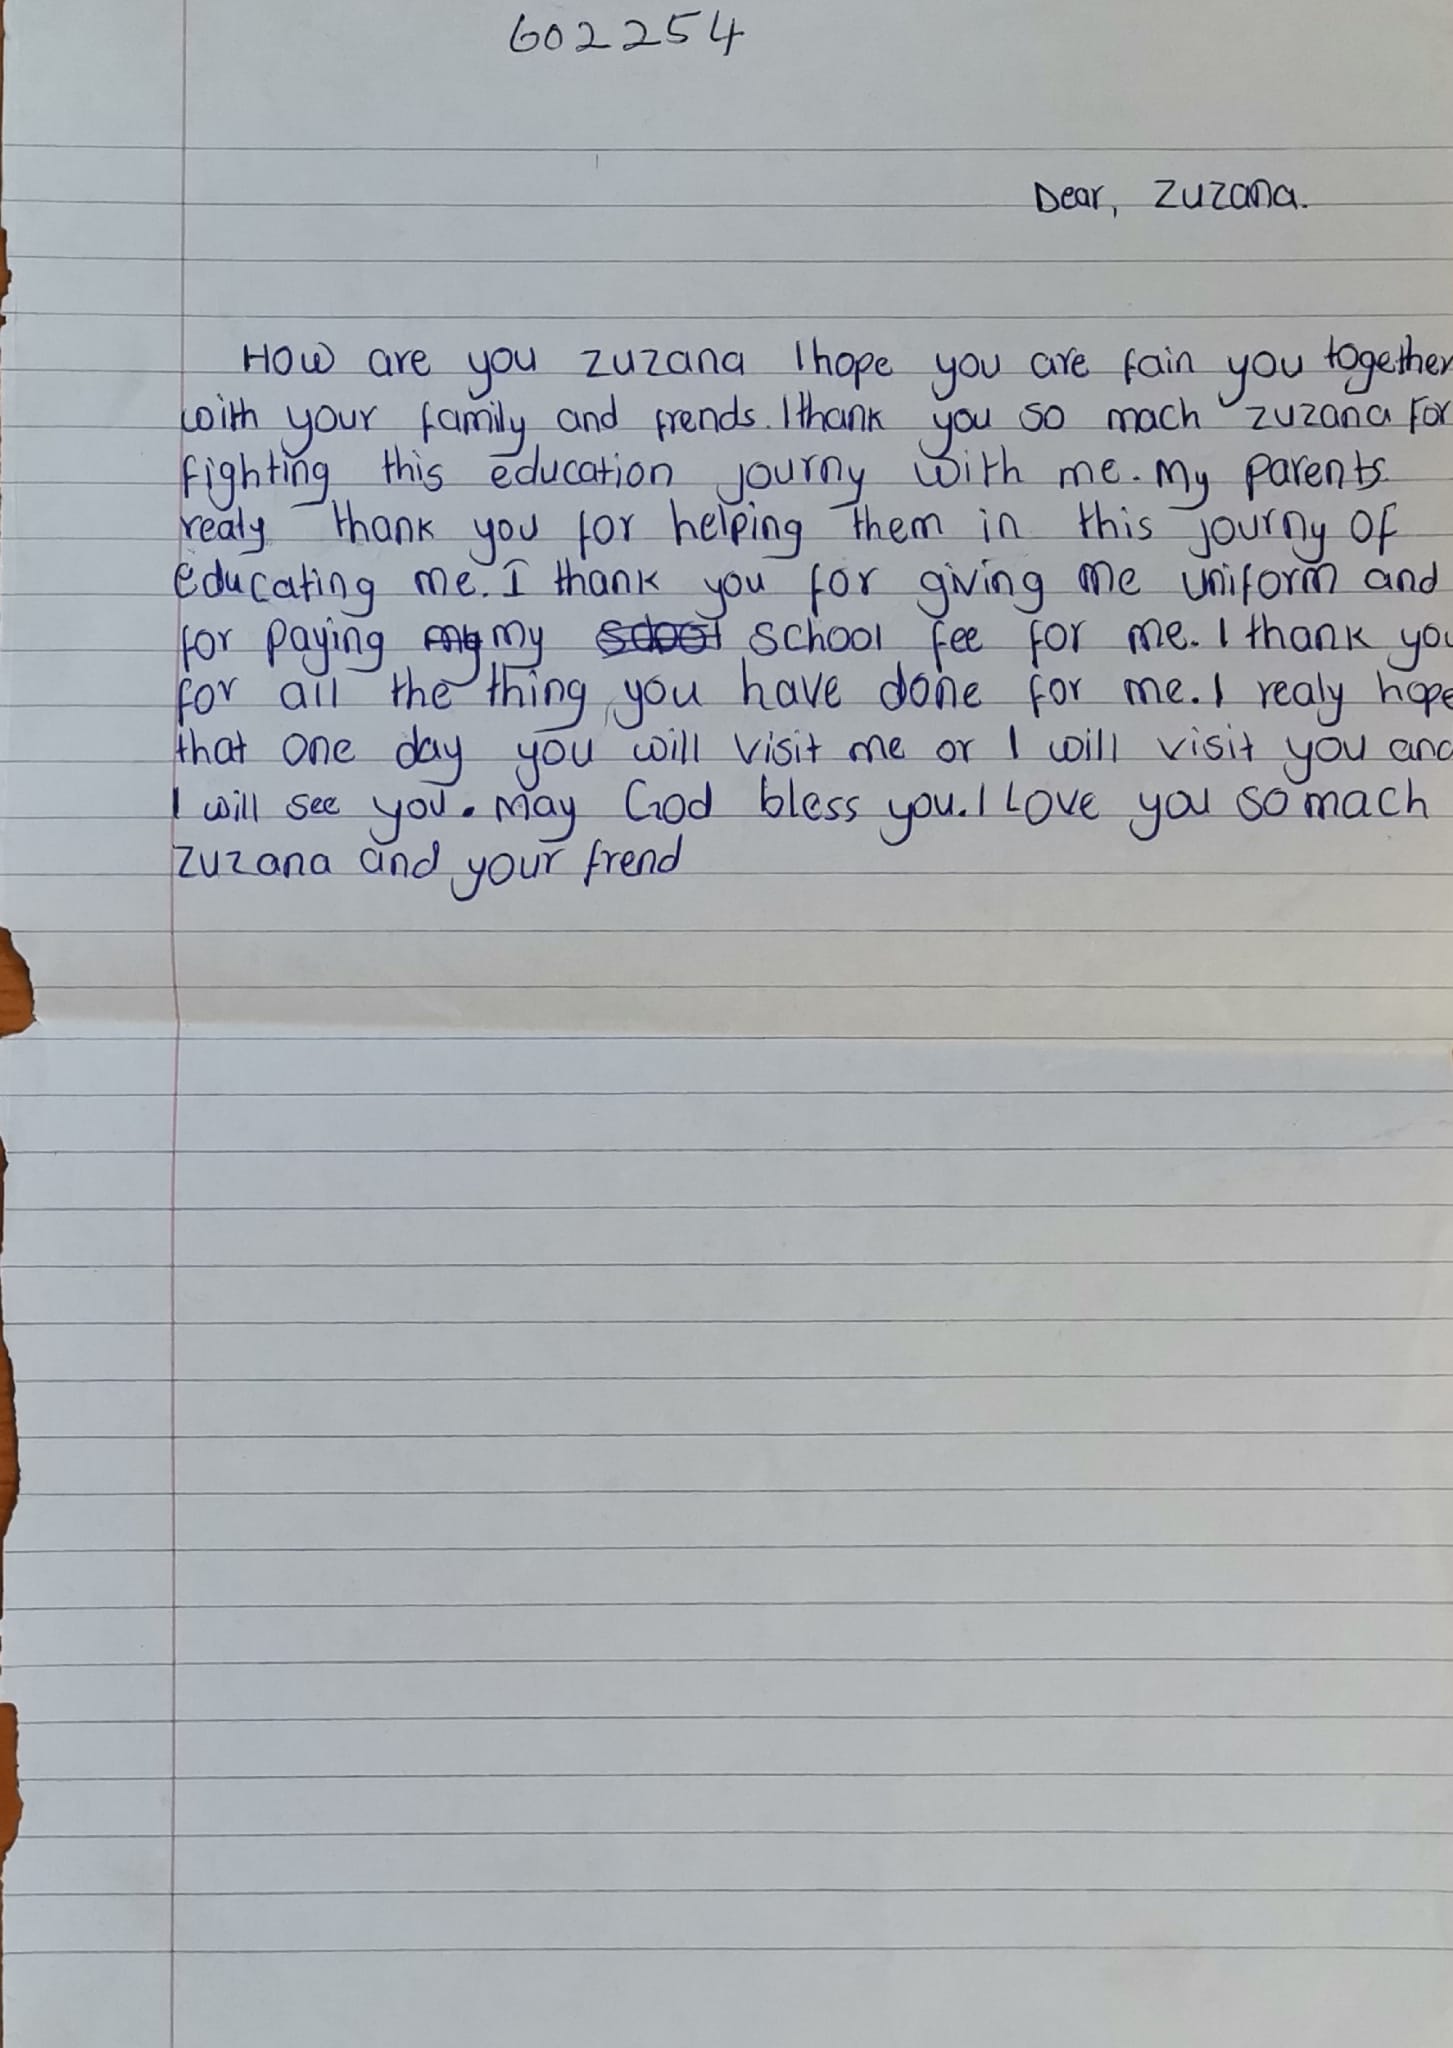 602254
Dear, Zuzana.
How are you zuzana I hope you are fain you together
with your family and frends. I thank you so mach zuzana For
fighting this education journy with me. My parents
realy thank you for helping them in this journy of
educating me. I thank you for giving me uniform and
for paying my my school fee for me. I thank you
for all the thing you have done for me. I realy hope
that one day you will visit me or I will visit you and
I will see you. May God bless you. I Love you so mach
Zuzana and your frend